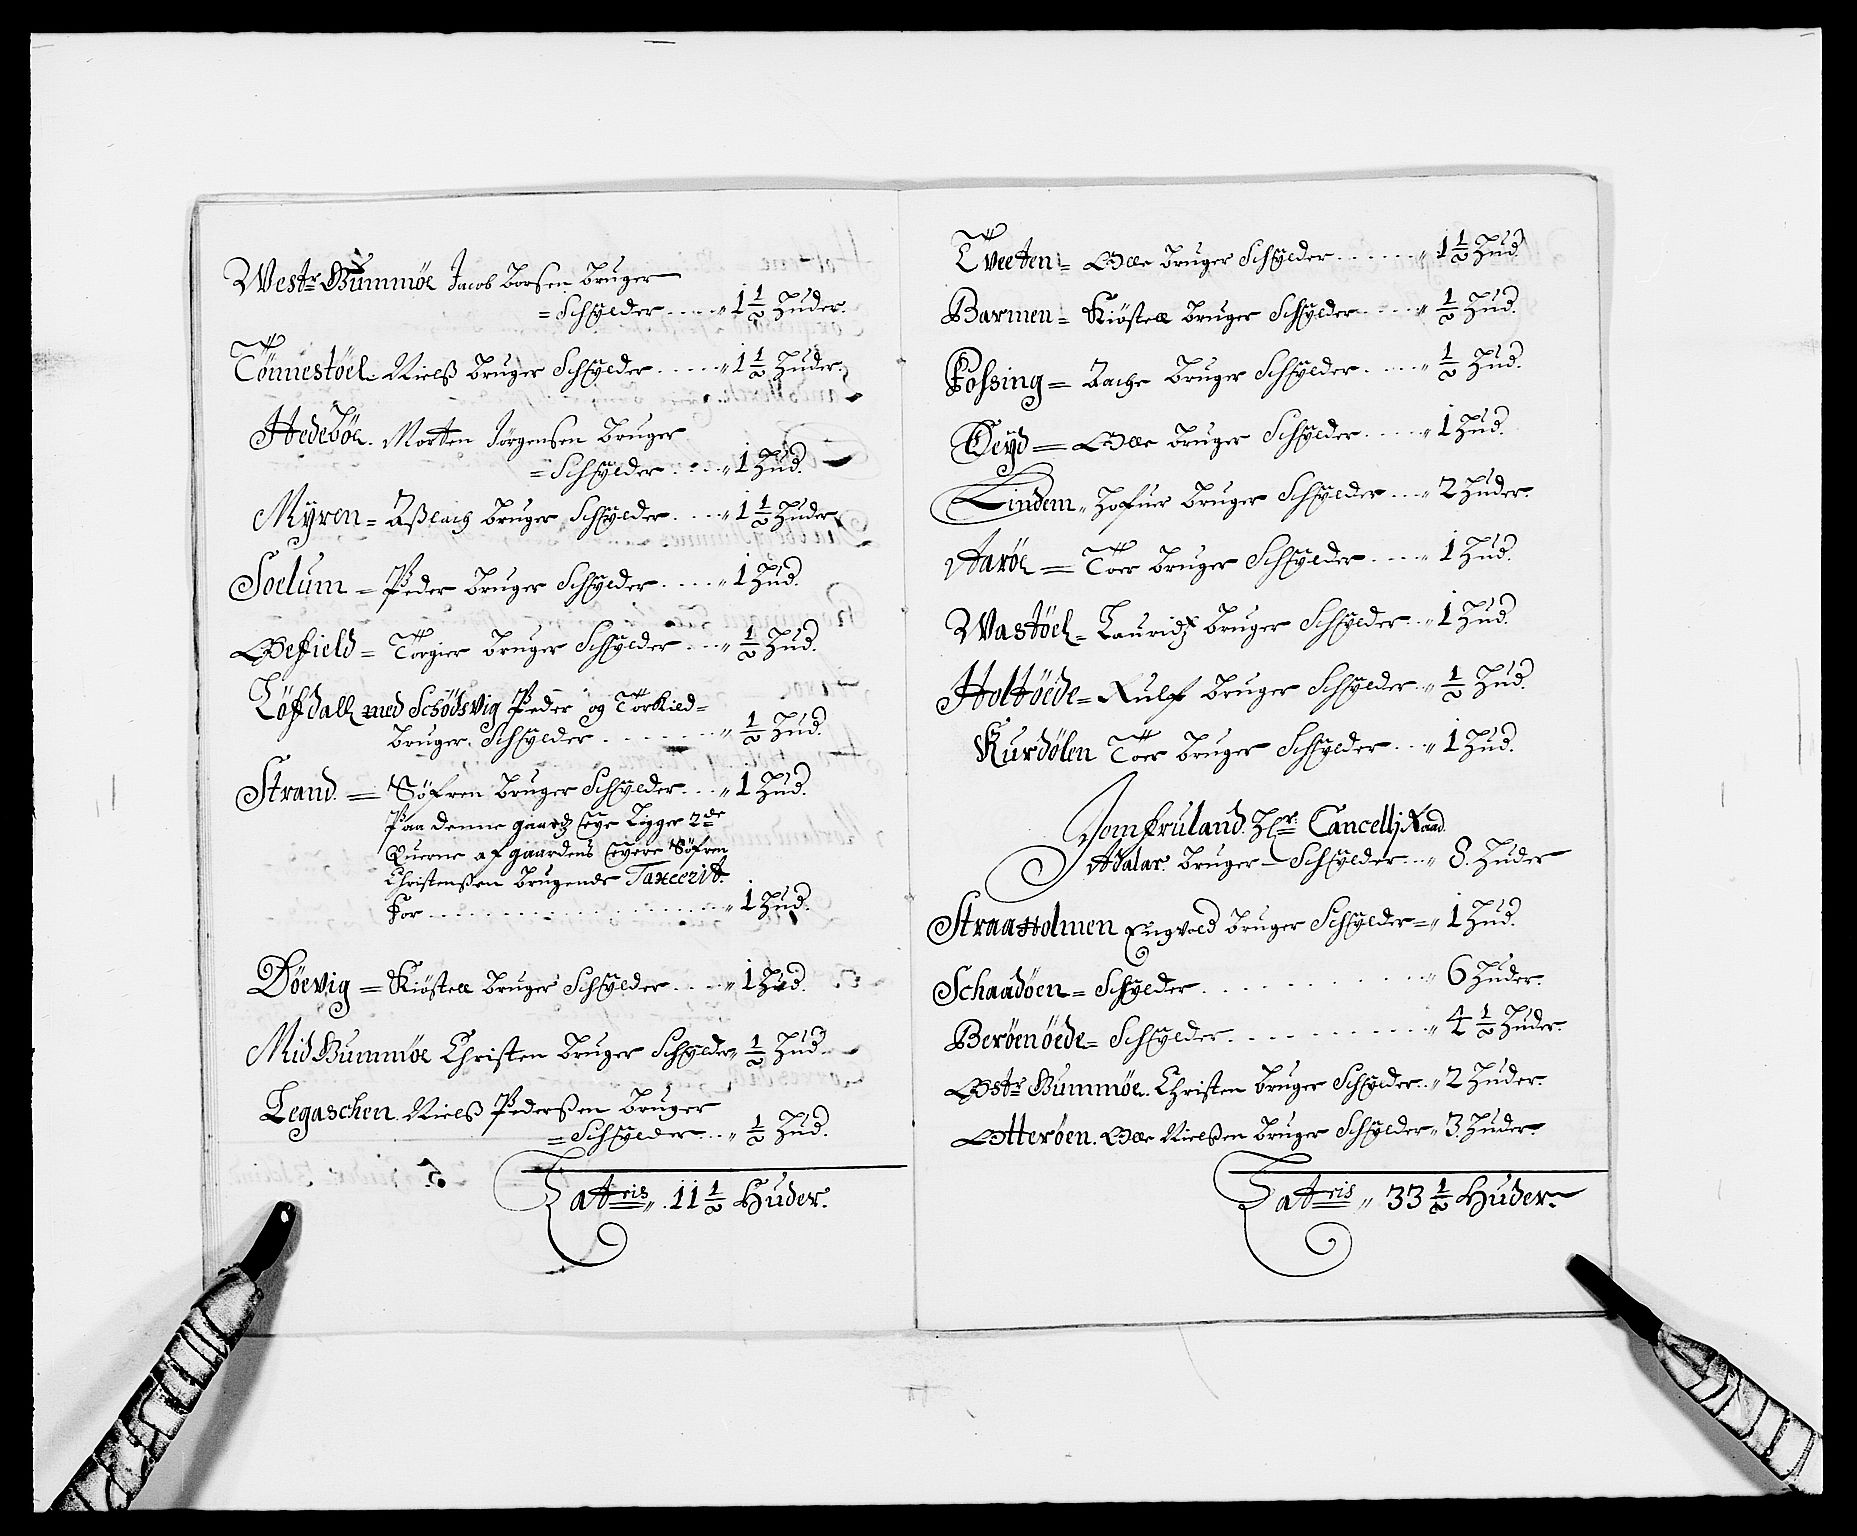 Westr Gummöe Jacob Borsen Bruger
= Schylder . . . . „ 1 1/2 Huder.
Tönnestöel. Nielß Bruger Schylder . . . . „ 1 1/2 Huder.
Hedeböe. Morten Jörgensen Bruger
= Schylder . . . . „ 1 Hud.
Myren = Aßlach Bruger Schylder . . . . „ 1 1/2 Huder
Soelum = Peder Bruger Schylder . . . . „ 1 Hud.
Giefield = Torgier Bruger Schylder . . . „ 1/2 Hud.
Löffdall med Schödsvig Peder og Torkild =
Bruger. Schylder . . . . . . . „ 1/2 Hud.
Strand. = Söfren Bruger Schylder . . . „ 1 Hud.
Paa denne gaardz Eye Ligger 2de
Querne af gaardens Eyere Söfren
Christenßen Brugende Taxcerit.
for . . . . . . . . . . . . . . . „ 1 Hud.
Döevig = Kiöstell Bruger Schylder . . . . „ 1 Hud.
Mid Gummöe Christen Bruger Schylder „ 1/2 Hud.
Legaschen. Nielß Pederßen Bruger
= Schylder . . . „ 1/2 Hud.
Latris „ 11 1/2 Huder.
Tveeten = Olle Bruger Schylder . . . . . . „ 1 1/2 Hud.
Barmen = Kiöstell Bruger Schylder . . . . „ 1/2 Hud.
Fossing = Aache Bruger Schylder . . . . „ 1/2 Hud.
Deyd = Olle Bruger Schylder . . . . „ 1 Hud.
Lindem „ Hofuer Bruger Schylder . . . „ 2 Huder.
Aaröe = Toer Bruger Schylder . . . . „ 1 Hud.
Wastöel = Lauridz Bruger Schylder . . „ 1 Hud.
Holtöede = Rulf Bruger Schylder . „ 1/2 Hud.
Kurdölen Toer Bruger Schylder . . . „ 1 Hud.
Jomfruland. Hr. Cancellj Raad
Adalar. Bruger - Schylder . . . „ 8. Huder
Straaholmen Engvold Bruger Schylder = „ 1 Hud.
Schaadöen = Schylder . . . . . . . . . . . „ 6 Huder.
Beröenöede = Schylder . . . . . . . . . . „ 4 1/2 Huder.
Ostr Gummöe. Christen Bruger Schylder . . „ 2 Huder.
Otteröen. Olle Nielßen Bruger Schylder „ 3 Huder.
Latris „ 33 1/2 Huder.